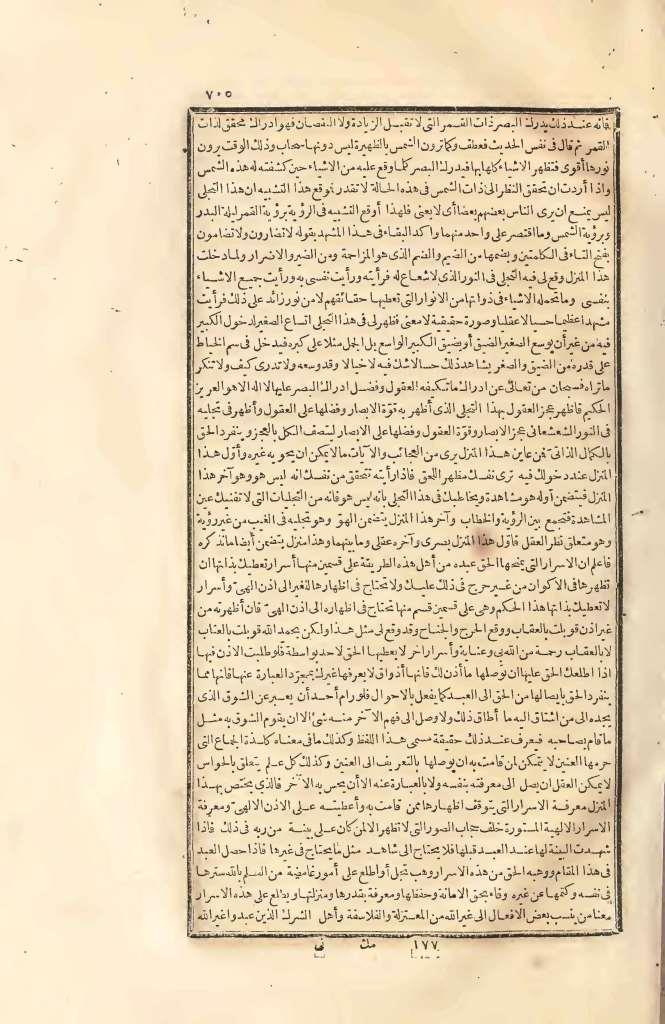 ٧٠٥
فانه عند ذلك يدرك البصر ذات القمر التي لا تقبل الزيادة ولا النقصان فهو ادراك محقق لذات
القمر ثم قال في نفس الحديث فعطف وكما ترون الشمس بالظهيرة ليس دونها سحاب وذلك الوقت يرون
نورها أقوى فتظهر الاشياء كلها بها فيدرك البصر كلما وقع عليه من الاشياء حين كشفته له هذه الشمس
واذا أردت ان تحقق النظر الى ذات الشمس في هذه الحالة لا تقدر فوقع هذا التشبيه ان هذا التجلي
ليس يمنع ان يرى الناس بعضهم بعضا أي لا يغني فلهذا أوقع التشبيه في الرؤية برؤية القمر ليلة البدر
وبرؤية الشمس وما اقتصر على واحد منهما وأكد البقاء في هذا المشهد بقوله لا تضارون ولا تضامون
بفتح التاء في الكلمتين وبضمها من الضيم والضم الذي هو المزاحمة ومن الضير والاضرار ولما دخلت
هذا المنزل وقع لي فيه التجلي في النور الذي لا شعاع له فرأيته ورأيت نفسي به ورأيت جميع الاشياء
بنفسي وما تحمله الاشياء في ذواتها من الانوار التي تعطيها حقائقهم لا من نور زائد على ذلك فرأيت
مشهدا عظيما حسيا لا عقليا وصورة حقيقية لا معنى فظهر لي في هذا التجلي اتساع الصغير لدخول الكبير
فيه من غير أن يوسع الصغير الضيق أو يضيق الكبير الواسع بل الجمل مثلا على كبره فيدخل في سم الخياط
على قدره من الضيق والصغر يشاهد ذلك حسا لا شك فيه لا خيالا وقد وسعه ولا تدري كيف ولا تنكر
ما تراه فسبحان من تعالى عن ادراك ما تكيفه العقول وفضل ادراك البصر عليها لا اله الا هو العزيز
الحكيم فاظهر عجز العقول بهذا التجلي الذي أظهر به قوة الابصار وفضلها على العقول وأظهر في تجليه
في النور الشعشعاني عجز الابصار وقوة العقول وفضلها على الابصار ليتصف الكل بالعجز وينفرد الحق
بالكمال الذاتي فمن عاين هذا المنزل يرى من العجائب والآيات ما لا يمكن ان يحويه غيره وأول هذا
المنزل عند دخولك فيه ترى نفسك مظهر اللحق فاذا رأيته تتحقق من نفسك انه ليس هو وهو آخر هذا
المنزل فيتضمن أوله هو مشاهدة ويخاطبك في هذا التجلي بانه ليس هو فانه من التجليات التي لا تفنيك عين
المشاهدة فتجمع بين الرؤية والخطاب وآخر هذا المنزل يتضمن الهو وهو تجليه في الغيب من غير رؤية
وهو متعلق نظر العقل فاول هذا المنزل بصرى وآخره عقلى وما بينهما وهذا منزل يتضمن أيضا ما نذكره
فاعلم ان الاسرار التي يمنحها الحق عبده من أهل هذه الطريقة على قسمين منها أسرار تعطيك بذاتها ان
تظهرها في الاكوان من غير حرج في ذلك عليك ولا تحتاج في اظهارها للغير الى اذن الهي وأسرار
لا تعطيك بذاتها هذا الحكم وهي على قسمين قسم منها يحتاج في اظهاره الى اذن الهي فان أظهرته من
غير اذن قوبلت بالعقاب ووقع الحرج والجناح وقد وقع لي مثل هذا ولكن بحمد الله قوبلت بالعتاب
لا بالعقاب رحمة من الله بي وعناية وأسرار أخر لا يعطيها الحق لاحد بواسطة فلو طلبت الاذن فيها
اذا اطلعك الحق عليها ان توصلها ما أذن لك فانها أذواق لا يعرفها غيرك بمجرد العبارة عنها فانها مما
ينفرد الحق بايصالها من الحق الى العبد كما يفعل بالاحوال فلو رام أحد أن يعبر عن الشوق الذي
يجده الى من اشتاق اليه ما أطاق ذلك ولا وصل الى فهم الآخر منه شئ الا ان يقوم الشوق به مثل
ما قام بصاحبه فيعرف عند ذلك حقيقة مسمى هذا اللفظ وكذلك ما في معناه كلذة الجماع التي
حرمها العنين لا يتمكن لمن قامت به ان يوصلها بالتعريف الى العنين وكذلك كل علم يتعلق بالحواس
لا يمكن العقل ان يصل الى معرفته بنفسه ولا بالعبارة عنه الا أن يحس به الآخر فالذي يختص بهذا
المنزل معرفة الاسرار التي يتوقف اظهارها ممن قامت به وأعطيته على الاذن الالهي ومعرفة
الاسرار الالهية المستورة خلف حجاب الصور التي لا تظهر الا لمن كان على بينة من ربه في ذلك فاذا
شهدت البينة لها عند العبد قبلها فلا يحتاج الى شاهد مثل ما يحتاج في غيرها فاذا حصل العبد
في هذا المقام ووهبه الحق من هذه الاسرار وهب تجل أو اطلع على أمور غامضة من العلم بالله سترها
في نفسه وكتمها عن غيره وفاء بحق الامانة وحفظها ومعرفة بقدرها ومنزلتها ويطلع على هذه الاسرار
معنا من ينسب بعض الافعال الى غير الله من المعتزلة والفلاسفة وأهل الشرك الذين عبدوا غير الله
١٧٧ مك ني